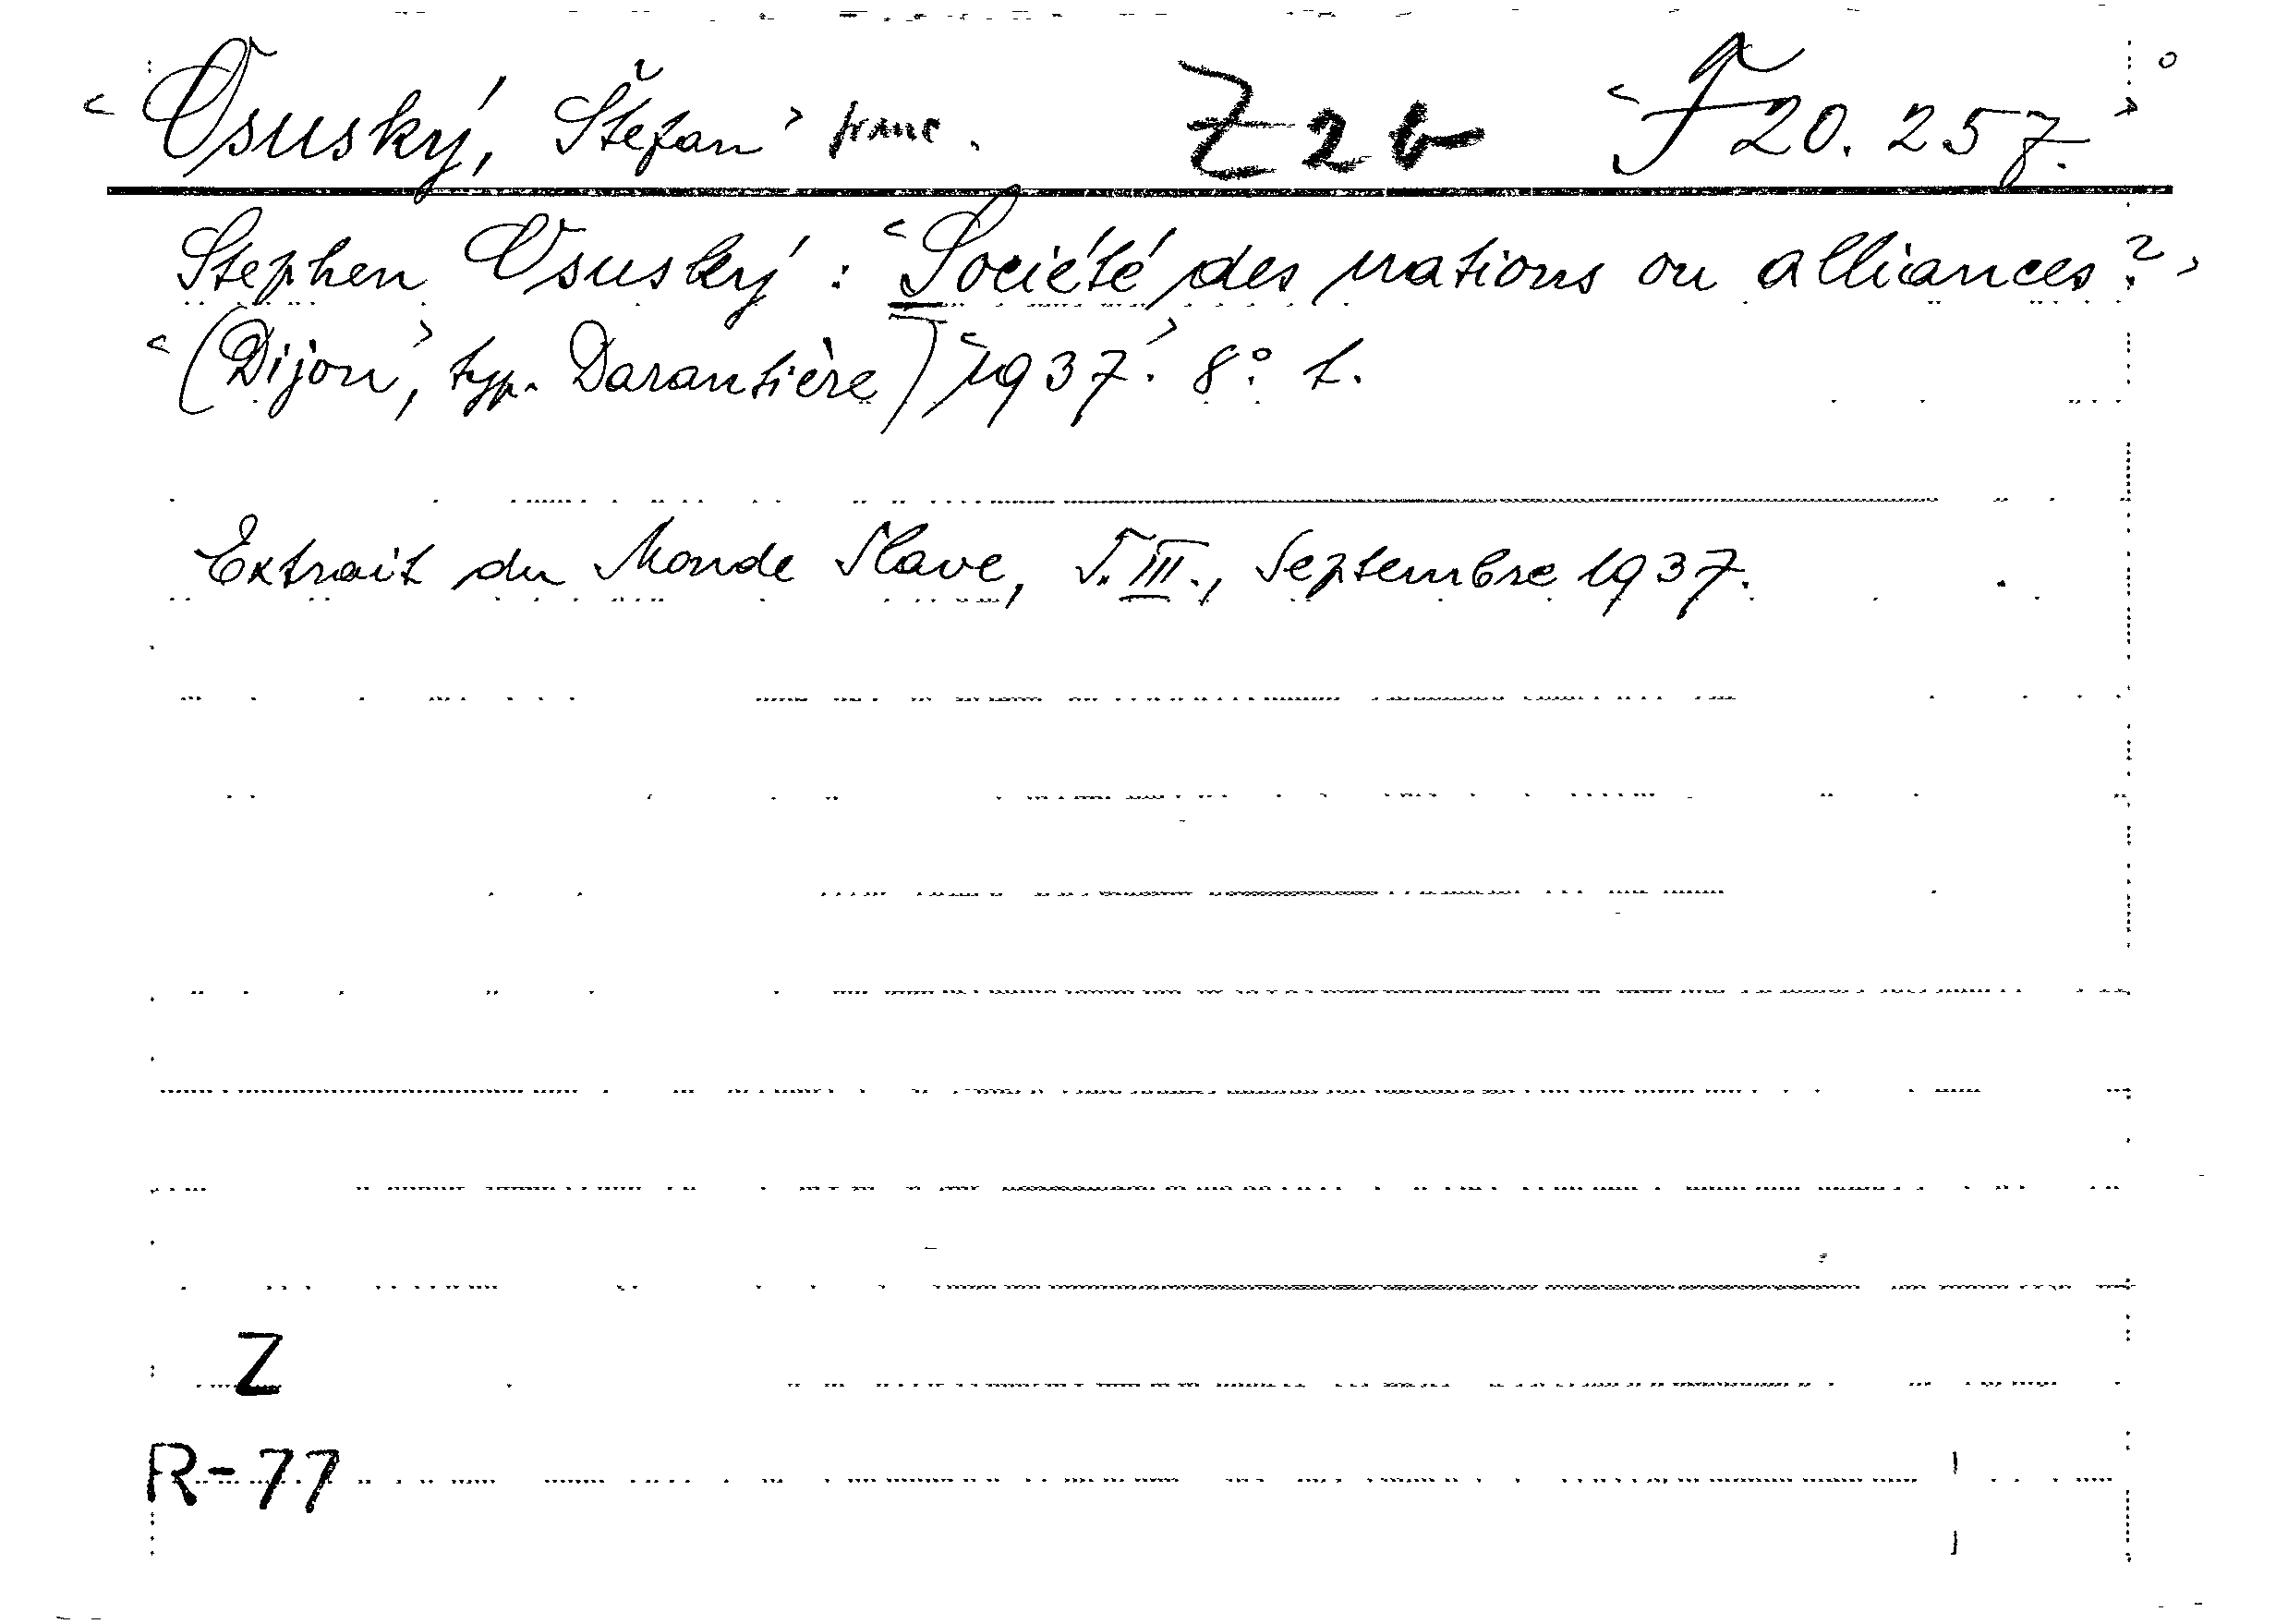 ‹Osuský, Štefan› franc. Z 2 b ‹F 20.257.›
Stephen Osuský: ‹Société des nations ou alliances?›
‹(Dijon›, typ. Darantière) ‹1937.› 8° t.
Extrait du Monde Slave, T. III., Septembre 1937.
Z
R-77